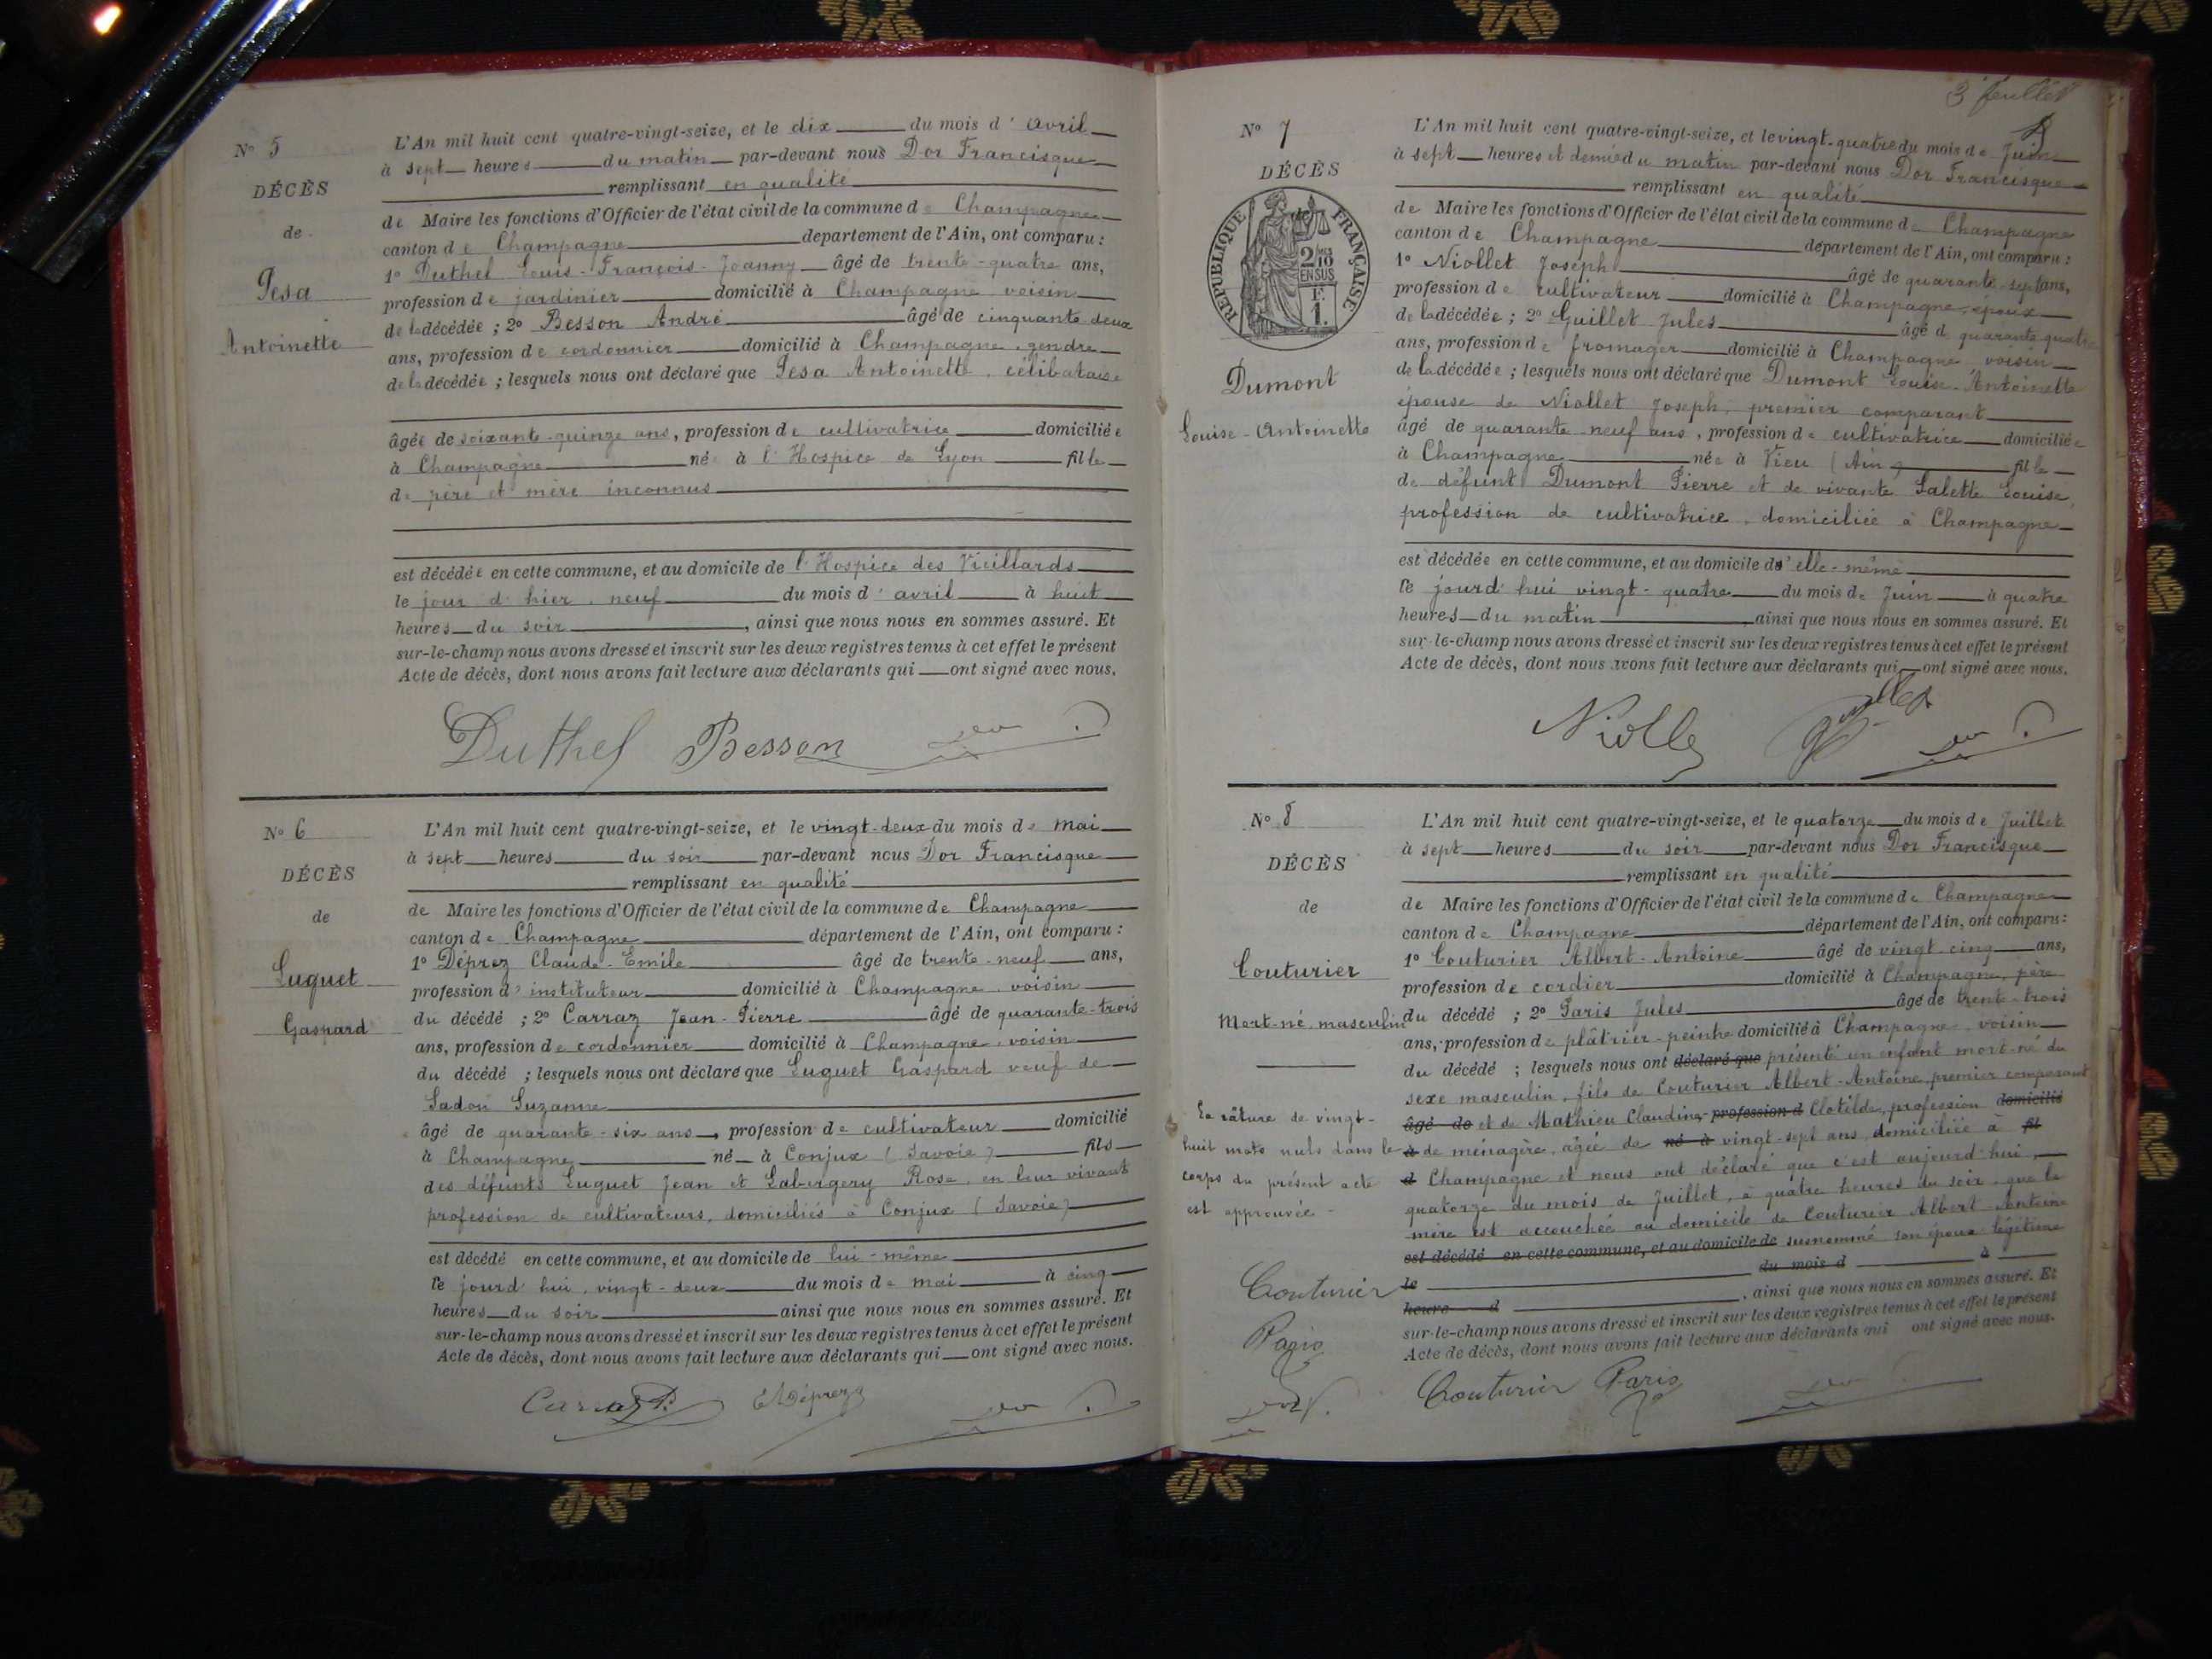 N° 5
DÉCÈS
de
Pesa
Antoinette
L'An mil huit cent quatre-vingt-seize, et le dix du mois d' avril
à sept heures du matin par-devant nous Dor Francisque
remplissant en qualité
de Maire les fonctions d'Officier de l'état civil de la commune de Champagne
canton de Champagne département de l'Ain, ont comparu :
1° Duthel Louis-François-Joanny âgé de trente-quatre ans,
profession de jardinier domicilié à Champagne voisin
de la décédée ; 2° Besson André âgé de cinquante deux
ans, profession de cordonnier domicilié à Champagne, gendre
de la décédée ; lesquels nous ont déclaré que Pesa Antoinette, célibataire
âgée de soixante-quinze ans, profession de cultivatrice domiciliée
à Champagne né à l'Hospice de Lyon fille
de père et mère inconnus
est décédée en cette commune, et au domicile de l'Hospice des Vieillards
le jour d'hier, neuf du mois d' avril à huit
heures du soir, ainsi que nous nous en sommes assuré. Et
sur-le-champ nous avons dressé et inscrit sur les deux registres tenus à cet effet le présent
Acte de décès, dont nous avons fait lecture aux déclarants qui ont signé avec nous.
Duthel Besson
N° 6
DÉCÈS
de
Luguet
Gaspard
L'An mil huit cent quatre-vingt-seize, et le vingt-deux du mois de mai
à sept heures du soir par-devant nous Dor Francisque
remplissant en qualité
de Maire les fonctions d'Officier de l'état civil de la commune de Champagne
canton de Champagne département de l'Ain, ont comparu :
1° Déprez Claude-Emile âgé de trente-neuf ans,
profession d' instituteur domicilié à Champagne, voisin
du décédé ; 2° Carraz Jean-Pierre âgé de quarante-trois
ans, profession de cordonnier domicilié à Champagne, voisin
du décédé ; lesquels nous ont déclaré que Luguet Gaspard veuf de
Sadoù Suzanne
âgé de quarante-six ans, profession de cultivateur domicilié
à Champagne né à Conjux (Savoie) fils
des défunts Luguet Jean et Labergery Rose, en leur vivant
profession de cultivateurs, domiciliés à Conjux (Savoie)
est décédé en cette commune, et au domicile de lui-même
le jourd'hui, vingt-deux du mois de mai à cinq
heures du soir ainsi que nous nous en sommes assuré. Et
sur-le-champ nous avons dressé et inscrit sur les deux registres tenus à cet effet le présent
Acte de décès, dont nous avons fait lecture aux déclarants qui ont signé avec nous.
Carraz P. Déprez
3e feuillet
N° 7
DÉCÈS
de
RÉPUBLIQUE FRANÇAISE
2/10
EN SUS
F.
1.
Dumont
Louise-Antoinette
L'An mil huit cent quatre-vingt-seize, et le vingt-quatre du mois de Juin
à sept heures et demie du matin par-devant nous Dor Francisque
remplissant en qualité
de Maire les fonctions d'Officier de l'état civil de la commune de Champagne
canton de Champagne département de l'Ain, ont comparu :
1° Niollet Joseph âgé de quarante-sept ans,
profession de cultivateur domicilié à Champagne, époux
de la décédée ; 2° Guillet Jules âgé d quarante-quatre
ans, profession de fromager domicilié à Champagne, voisin
de la décédée ; lesquels nous ont déclaré que Dumont Louise-Antoinette
épouse de Niollet Joseph, premier comparant
âgé de quarante neuf ans, profession de cultivatrice domiciliée
à Champagne née à Vieu (Ain) fille
de défunt Dumont Pierre et de vivante Salette Louise,
profession de cultivatrice, domiciliée à Champagne
est décédée en cette commune, et au domicile d' elle-même
le jourd'hui vingt-quatre du mois de Juin à quatre
heures du matin, ainsi que nous nous en sommes assuré. Et
sur-le-champ nous avons dressé et inscrit sur les deux registres tenus à cet effet le présent
Acte de décès, dont nous avons fait lecture aux déclarants qui ont signé avec nous.
Niollet Guillet
N° 8
DÉCÈS
de
Couturier
Mort-né masculin
La râture de vingt-
huit mots nuls dans le
corps du présent acte
est approuvée -
Couturier
Paris
L'An mil huit cent quatre-vingt-seize, et le quatorze du mois de Juillet
à sept heures du soir par-devant nous Dor Francisque
remplissant en qualité
de Maire les fonctions d'Officier de l'état civil de la commune de Champagne
canton de Champagne département de l'Ain, ont comparu :
1° Couturier Albert-Antoine âgé de vingt-cinq ans,
profession de cordier domicilié à Champagne, père
du décédé ; 2° Paris Jules âgé de trente-trois
ans, profession de plâtrier-peintre domicilié à Champagne, voisin
du décédé ; lesquels nous ont déclaré que présenté un enfant mort-né du
sexe masculin, fils de Couturier Albert-Antoine premier comparant
âgé de et de Mathieu Claudine profession d Clotilde, profession domicilié
à de ménagère, âgée de né à vingt-sept ans, domiciliée à fil
d Champagne et nous ont déclaré que c'est aujourd'hui,
quatorze du mois de Juillet, à quatre heures du soir, que la
mère est accouchée au domicile de Couturier Albert-Antoine
est décédé en cette commune, et au domicile de susnommé son époux légitime
le du mois d à
heure d , ainsi que nous nous en sommes assuré. Et
sur-le-champ nous avons dressé et inscrit sur les deux registres tenus à cet effet le présent
Acte de décès, dont nous avons fait lecture aux déclarants qui ont signé avec nous.
Couturier Paris